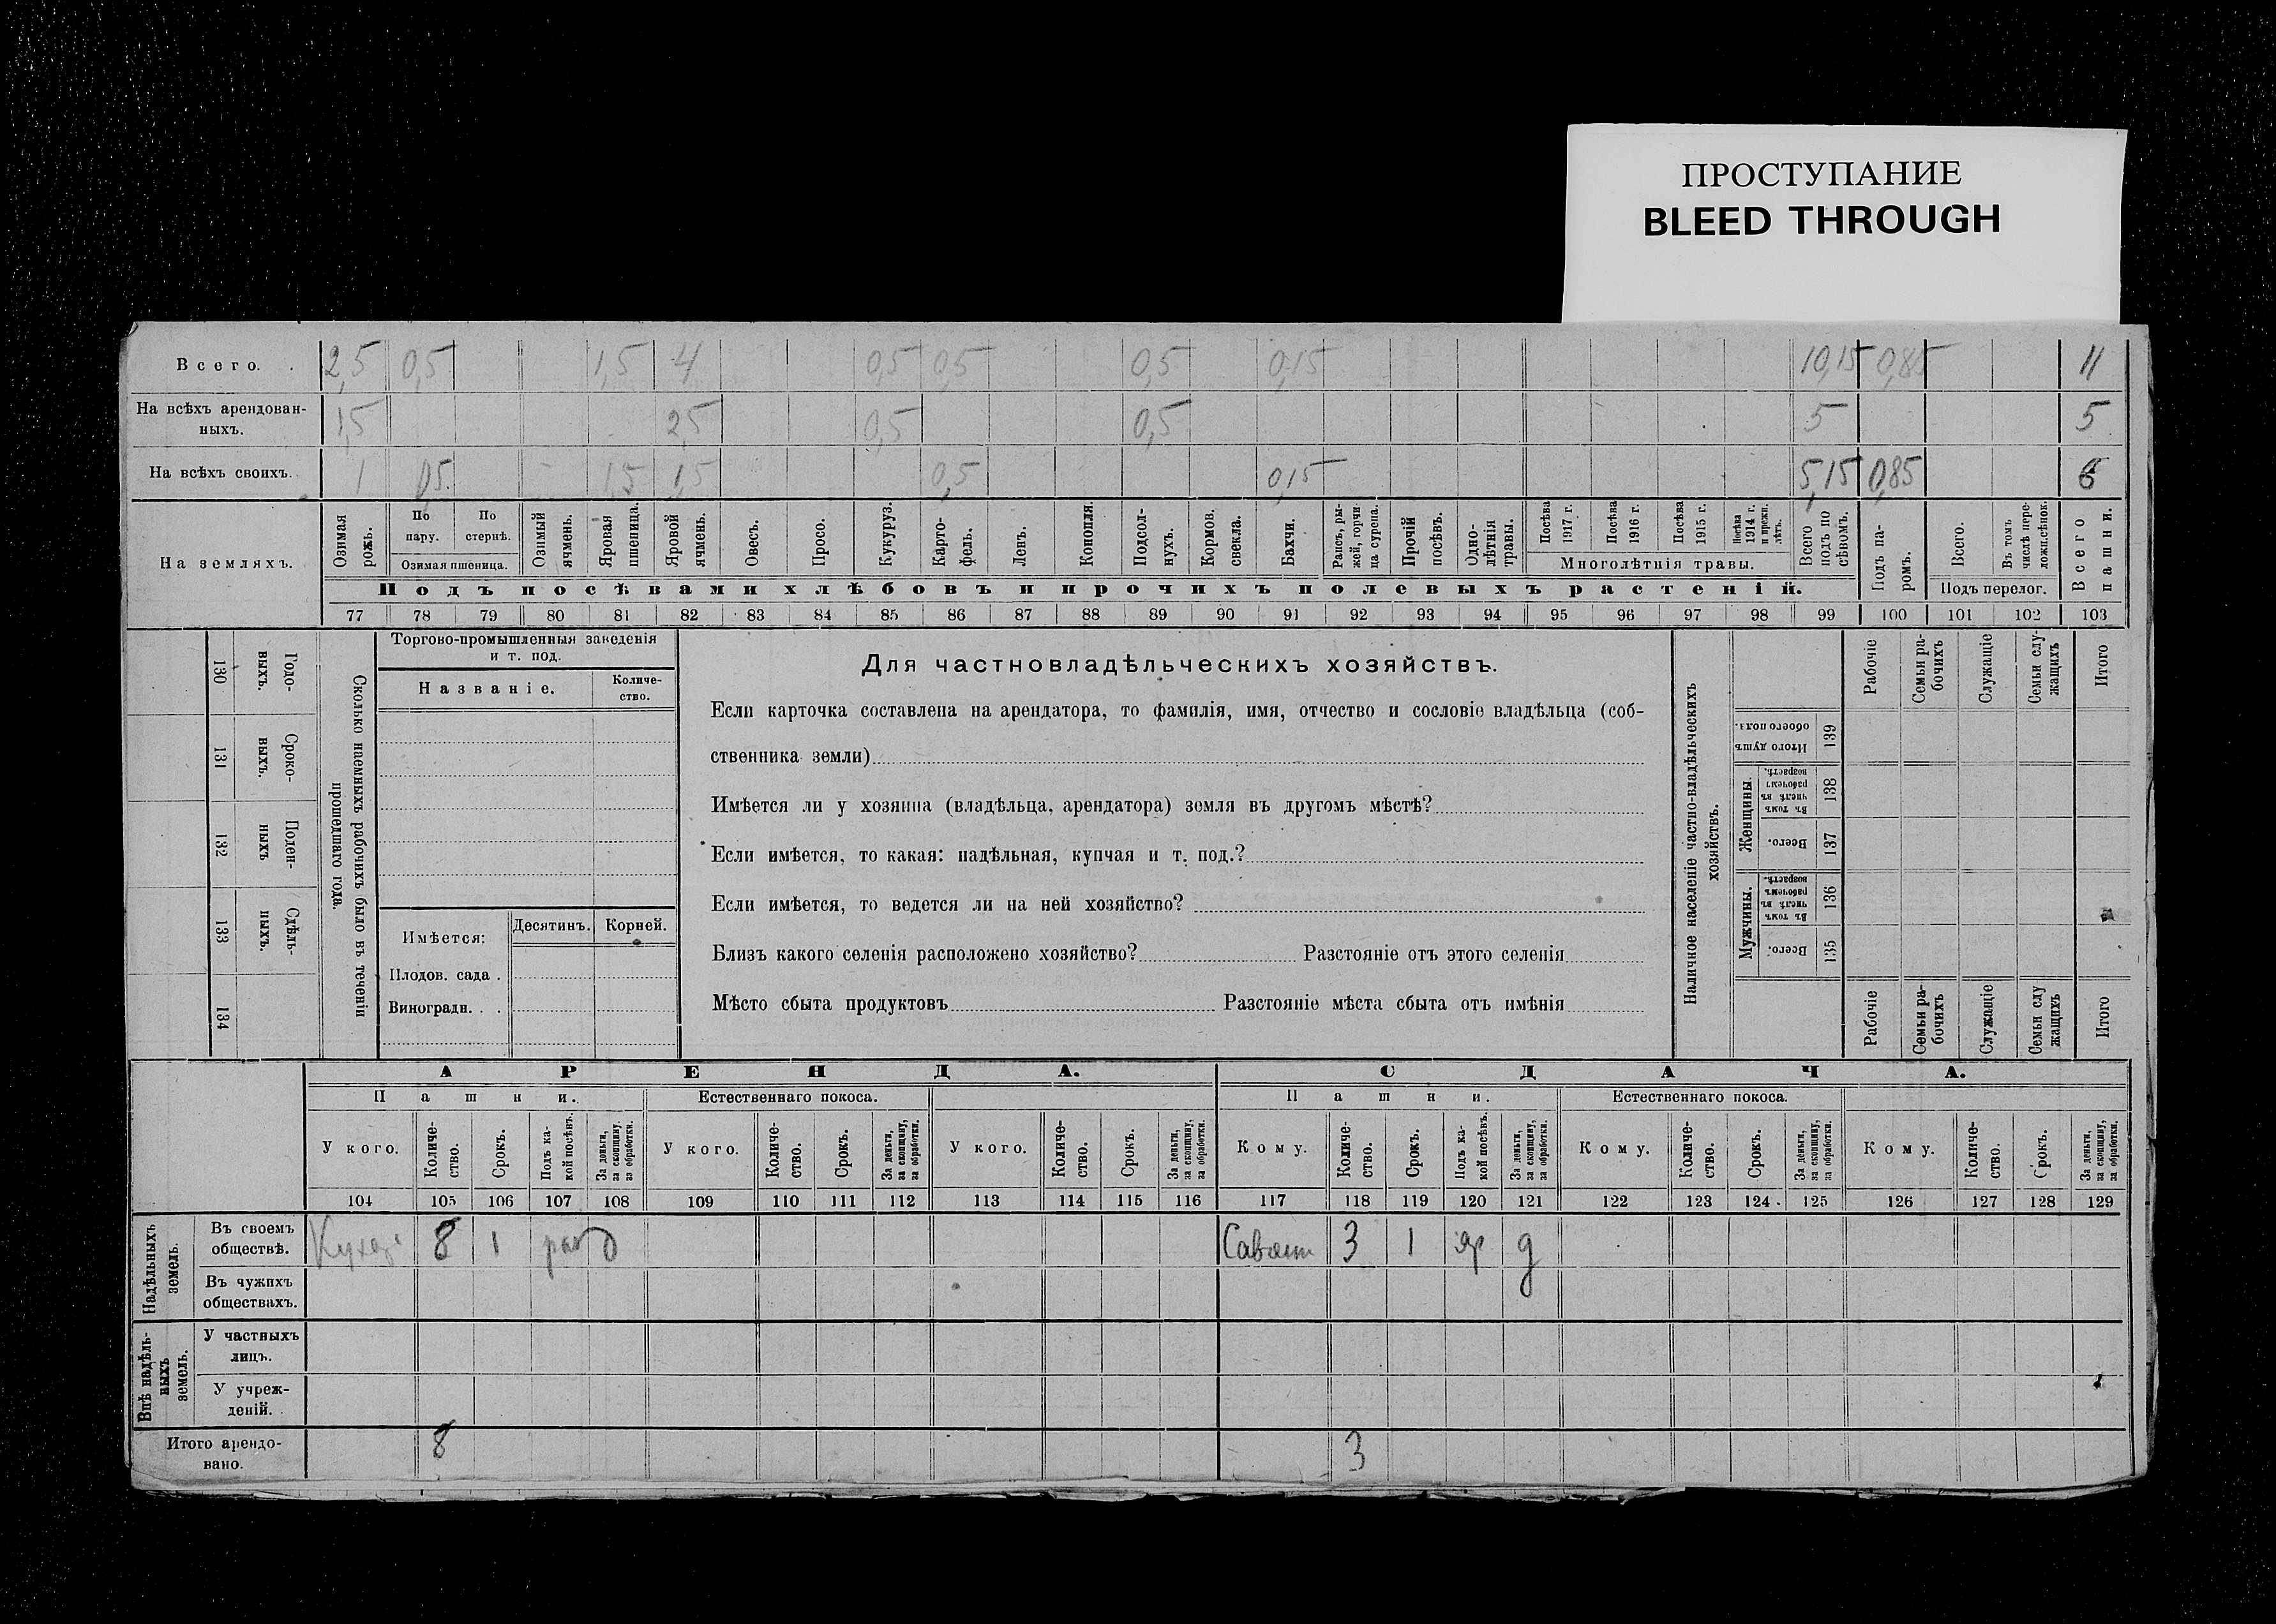 ПРОСТУПАНИЕ
BLEED THROUGH
Всего. 2,5 0,5 1,5 4 0,5 0,5 0,5 0,15 10,15 0,85 11
На всѣхъ арендован-
ныхъ. 1,5 2,5 0,5 0,5 5 5
На всѣхъ своихъ. 1 0,5 1,5 1,5 0,5 0,15 5,15 0,85 6
На земляхъ.
Озимая рожь.
По пару.
По стернѣ.
Озимая пшеница.
Озимый ячмень.
Яровая пшеница.
Яровой ячмень.
Овесъ.
Просо.
Кукуруз.
Карто-
фель.
Ленъ.
Конопля.
Подсол-
нухъ.
Кормов. свекла.
Бахчи.
Рапсъ, ры-
жей, горчи-
ца сурепа.
Прочій посѣвъ.
Одно-
лѣтнія травы.
Посѣва 1917 г.
Посѣва 1916 г.
Посѣва 1915 г.
Посѣва 1914 г. и прежн. лѣтъ.
Многолѣтнія травы.
Всего подъ по
сѣвомъ.
Подъ па-
ромъ.
Всего.
Въ томъ числѣ пере-
ложн.сѣнок.
Подъ перелог.
Всего пашни.
Подъ посѣвами хлѣбовъ и прочихъ полевыхъ растеній.
77 78 79 80 81 82 83 84 85 86 87 88 89 90 91 92 93 94 95 96 97 98 99 100 101 102 103
130 Годо-
выхъ.
131 Сроко-
выхъ.
132 Поден-
ныхъ
133 Сдѣль-
ныхъ.
134
Сколько наемныхъ рабочихъ было въ теченіи
прошедшаго года.
Торгово-промышленныя заведенія
и т. под.
Названіе.
Количе-
ство.
Имѣется:
Десятинъ.
Корней.
Плодов. сада .
Виноградн. . .
Для частновладѣльческихъ хозяйствъ.
Если карточка составлена на арендатора, то фамилія, имя, отчество и сословіе владѣльца (соб-
ственника земли)
Имѣется ли у хозяина (владѣльца, арендатора) земля въ другомъ мѣстѣ?
Если имѣется, то какая: надѣльная, купчая и т. под.?
Если имѣется, то ведется ли на ней хозяйство?
Близъ какого селенія расположено хозяйство? Разстояніе отъ этого селенія
Мѣсто сбыта продуктовъ Разстояніе мѣста сбыта отъ имѣнія
Наличное населеніе частно-владѣльческихъ
хозяйствъ.
Рабочіе
Семьи ра-
бочихъ
Служащіе
Семьи слу-
жащихъ
Итого
Итого душъ обоего пола. 139
Женщины.
Въ томъ числѣ въ рабочемъ возрастѣ. 138
Всего. 137
Мужчины.
Въ томъ числѣ въ рабочемъ возрастѣ. 136
Всего. 135
Рабочіе
Семьи ра-
бочихъ
Служащіе
Семьи слу
жащихъ
Итого
АРЕНДА.
СДАЧА.
Пашни.
Естественнаго покоса.
Пашни.
Естественнаго покоса.
У кого.
Количе-
ство.
Срокъ.
Подъ ка-
кой посѣвъ.
За деньги, за скопщину, за обработки.
У кого.
Количе-
ство.
Срокъ.
За деньги, за скопщину, за обработки.
У кого.
Количе-
ство.
Срокъ.
За деньги, за скопщину, за обработки.
Кому.
Количе-
ство.
Срокъ.
Подъ ка-
кой посѣвъ.
За деньги, за скопщину, за обработки.
Кому.
Количе-
ство.
Срокъ.
За деньги, за скопщину, за обработки.
Кому.
Количе-
ство.
Срокъ.
За деньги, за скопщину, за обработки.
104 105 106 107 108 109 110 111 112 113 114 115 116 117 118 119 120 121 122 123 124 125 126 127 128 129
Надѣльныхъ земель.
Въ своемъ
обществѣ. 8 1 3 1 яр д
Въ чужихъ
обществахъ.
Внѣ надѣль-
ныхъ земель.
У частныхъ
лицъ.
У учреж-
деній.
Итого арендо-
вано. 8 3